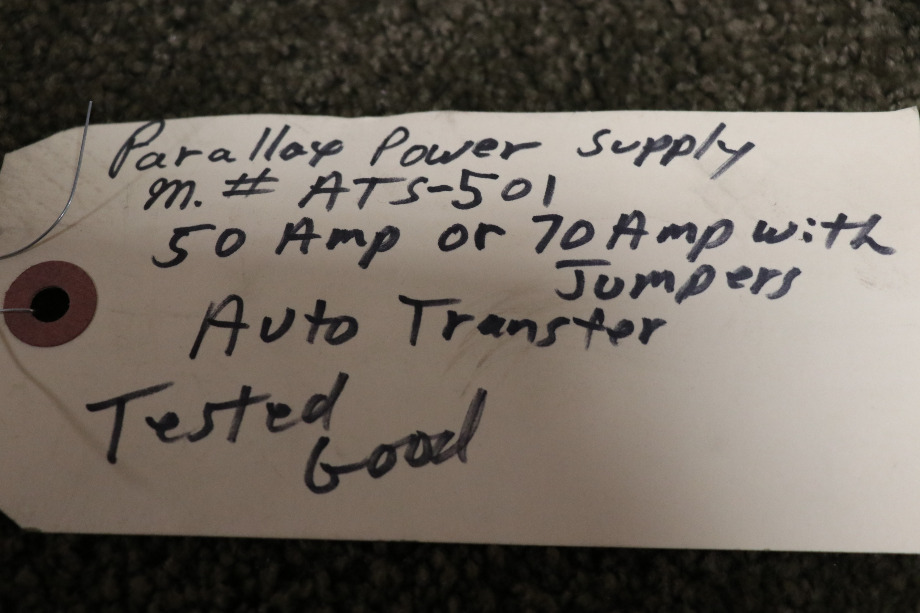 Parallax Power Supply
M. # ATS-501
50 Amp or 70 Amp with
Jumpers
Auto Transfer
Tested
Good